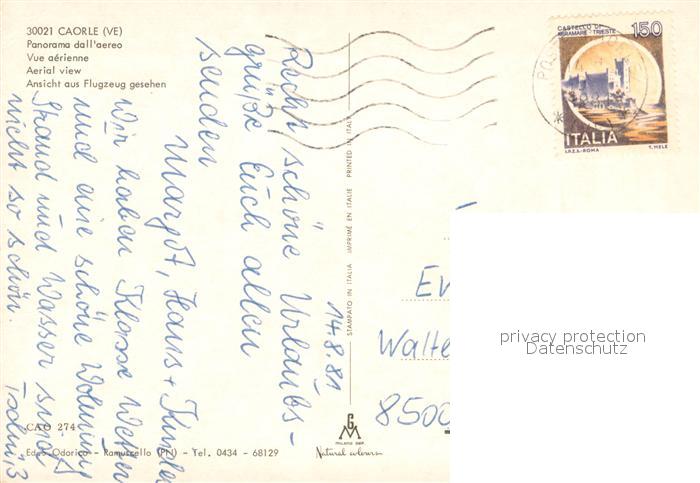 30021 CAORLE (VE)
Panorama dall'aereo
Vue aérienne
Aerial view
Ansicht aus Flugzeug gesehen
CASTELLO DI
MIRAMARE - TRIESTE
150
ITALIA
I.P.Z.S. - ROMA
T. MELE
14.8.81
Recht schöne Urlaubs-
grüße Euch allen
senden
Margot, Hans + Kinder
Wir haben Klasse Wetter
und eine schöne Wohnung
Strand und Wasser sind
nicht so schön. Tschüß
STAMPATO IN ITALIA IMPRIMÉ EN ITALIE PRINTED IN ITALY
Walte
8500
privacy protection
Datenschutz
CAO 274
Ed. S. Odorico - Ramuscello (PN) - Tel. 0434 - 68129
MILANO
Natural colours